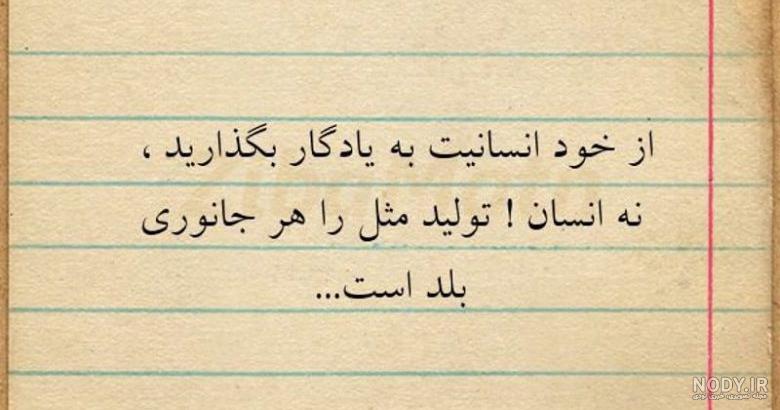 از خود انسانیت به یادگار بگذارید ،
نه انسان ! تولید مثل را هر جانوری
بلد است...
NODY.IR
مجله تصویری خبری نودی